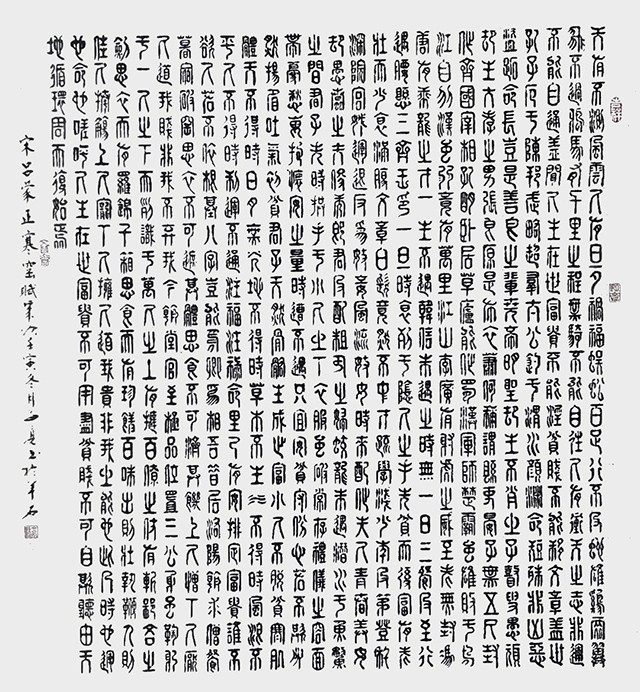 天有不測風雲人有旦夕禍福蜈蚣百足行不及蛇雄雞兩翼
飛不過鴉馬有千里之程無騎不能自往人有衝天之志非運
不能自通蓋聞人生在世富貴不能淫貧賤不能移文章蓋世
孔子厄于陳邦武略超羣太公釣于渭水顏淵命短殊非凶惡
盜跖命長豈是善良之輩堯帝明聖却生不肖之子瞽叟愚頑
却生大孝之男張良原是布衣蕭何稱謂縣吏晏子無五尺封
作齊國宰相孔明卧居草廬能作蜀漢軍師楚霸雖雄敗于烏
江自刎漢王雖弱竟有萬里江山李廣有射虎之威至老無封馮
唐有乘龍之才一生不遇韓信未遇之時無一日三餐及至行
遇腰懸三齊玉印一旦時衰死于陰人之手先貧而後富有老
壯而少衰滿腹文章白髮竟然不中才疏學淺少年及第登科
深院宮娥運退反為妓妾風流妓女時來配作夫人青春美女
却愚蠢之夫俊秀郎君反配粗醜之婦蛟龍未遇潛水于魚鱉
之間君子失時拱手于小人之下衣服雖破常存禮儀之容面
帶憂愁每抱懷安之量時遭不遇只宜安貧守份心若不欺必
然揚眉吐氣初貧君子天然骨骼生成乍富小人不脫貧寒肌
體天不得時日月無光地不得時草木不生水不得時風浪不
平人不得時利運不通注福注祿命里已有安排定富貴誰不
欲人若不依根基八字豈能為卿為相吾昔居洛陽朝求僧餐
暮宿破窰思衣不可遮其體思食不可濟其饑上人憎下人厭
人道我賤非我不棄也今朝堂官至極品位置三公身雖鞠躬
于一人之下而列職于萬人之上有撻百僚之杖有斬鄙吝之
劍思衣而有羅錦千箱思食而有珍饈百味出則壯執鞭入則
佳人捧觴上人寵下人擁人道我貴非我之能也此乃時也運
也命也嗟呼人生在世富貴不可用盡貧賤不可自欺聽由天
地循環周而復始焉
宋呂蒙正寒窰賦歲次壬寅冬月